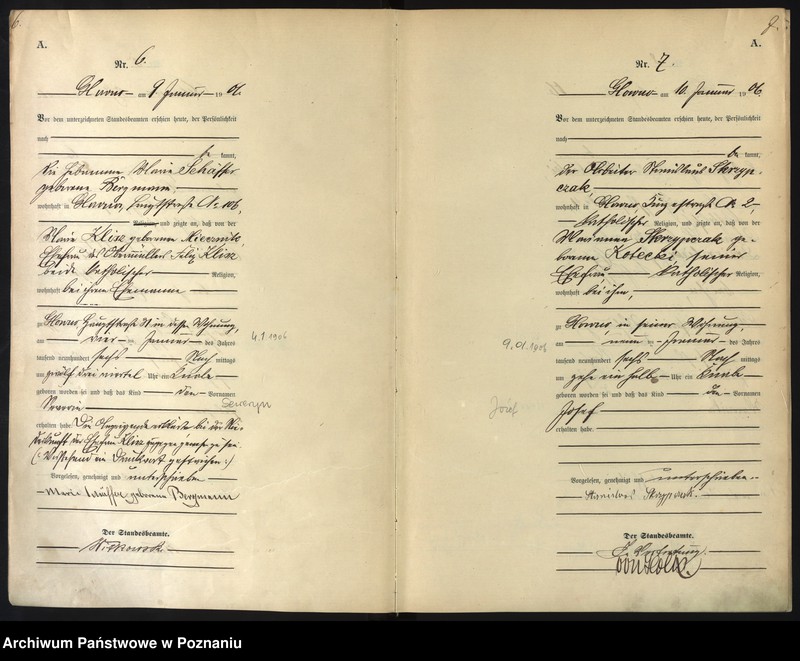 6.
A.
Nr. 6.
Glowno am 9 Januar 1906.
Vor dem unterzeichneten Standesbeamten erschien heute, der Persönlichkeit
nach
be kannt,
die Hebamme Marie Schäffer
geborene Bergmann,
wohnhaft in Glowno, Hauptstraße № 106,
Religion, und zeigte an, daß von der
Marie Klisz geborene Miecznik,
Ehefrau des Obermüllers Felix Klisz
beide katholischer Religion,
wohnhaft bei ihrem Ehemanne
zu Glowno Hauptstraße in dessen Wohnung,
am vier ten Januar des Jahres
tausend neunhundert sechs Nach mittags
um zwölf drei viertel Uhr ein Knabe
geboren worden sei und daß das Kind den Vornamen
Severin
Seweryn
4.1 1906
erhalten habe. Die Anzeigende erklärte bei der Nie-
derkunft der Ehefrau Klisz zugegen gewesen zu sei.
(: Vorstehend ein Druckwort gestrichen :)
Vorgelesen, genehmigt und unterschrieben
Marie Schäffer geborene Bergmann
Der Standesbeamte.
7.
A.
Nr. 7.
Glowno am 10 Januar 1906.
Vor dem unterzeichneten Standesbeamten erschien heute, der Persönlichkeit
nach
be kannt,
der Arbeiter Stanislaus Skrzyp-
czak,
wohnhaft in Glowno № 2,
katholischer Religion, und zeigte an, daß von der
Marianna Skrzypczak ge-
borene Kotecki seiner
Ehefrau katholischer Religion,
wohnhaft bei ihm,
zu Glowno, in seiner Wohnung,
am neun ten Januar des Jahres
tausend neunhundert sechs Nach mittags
um zehn ein halb Uhr ein Knabe
geboren worden sei und daß das Kind den Vornamen
Josef
Józef
9.01.1906
erhalten habe.
Vorgelesen, genehmigt und unterschrieben
Stanislaus Skrzypczak
Der Standesbeamte.
In Vertretung.
Archiwum Państwowe w Poznaniu